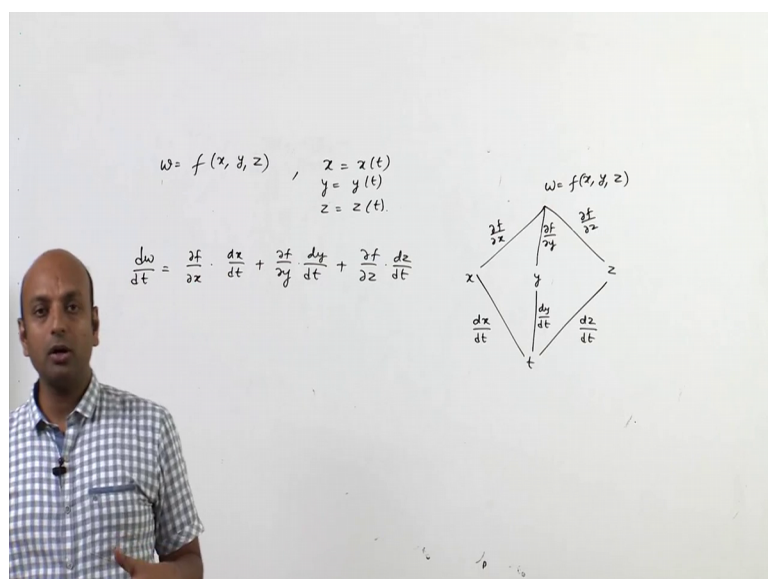 w = f(x, y, z) , x = x(t)
y = y(t)
z = z(t).
dw/dt = ∂f/∂x · dx/dt + ∂f/∂y · dy/dt + ∂f/∂z · dz/dt
w = f(x, y, z)
∂f/∂x ∂f/∂y ∂f/∂z
x y z
dx/dt dy/dt dz/dt
t